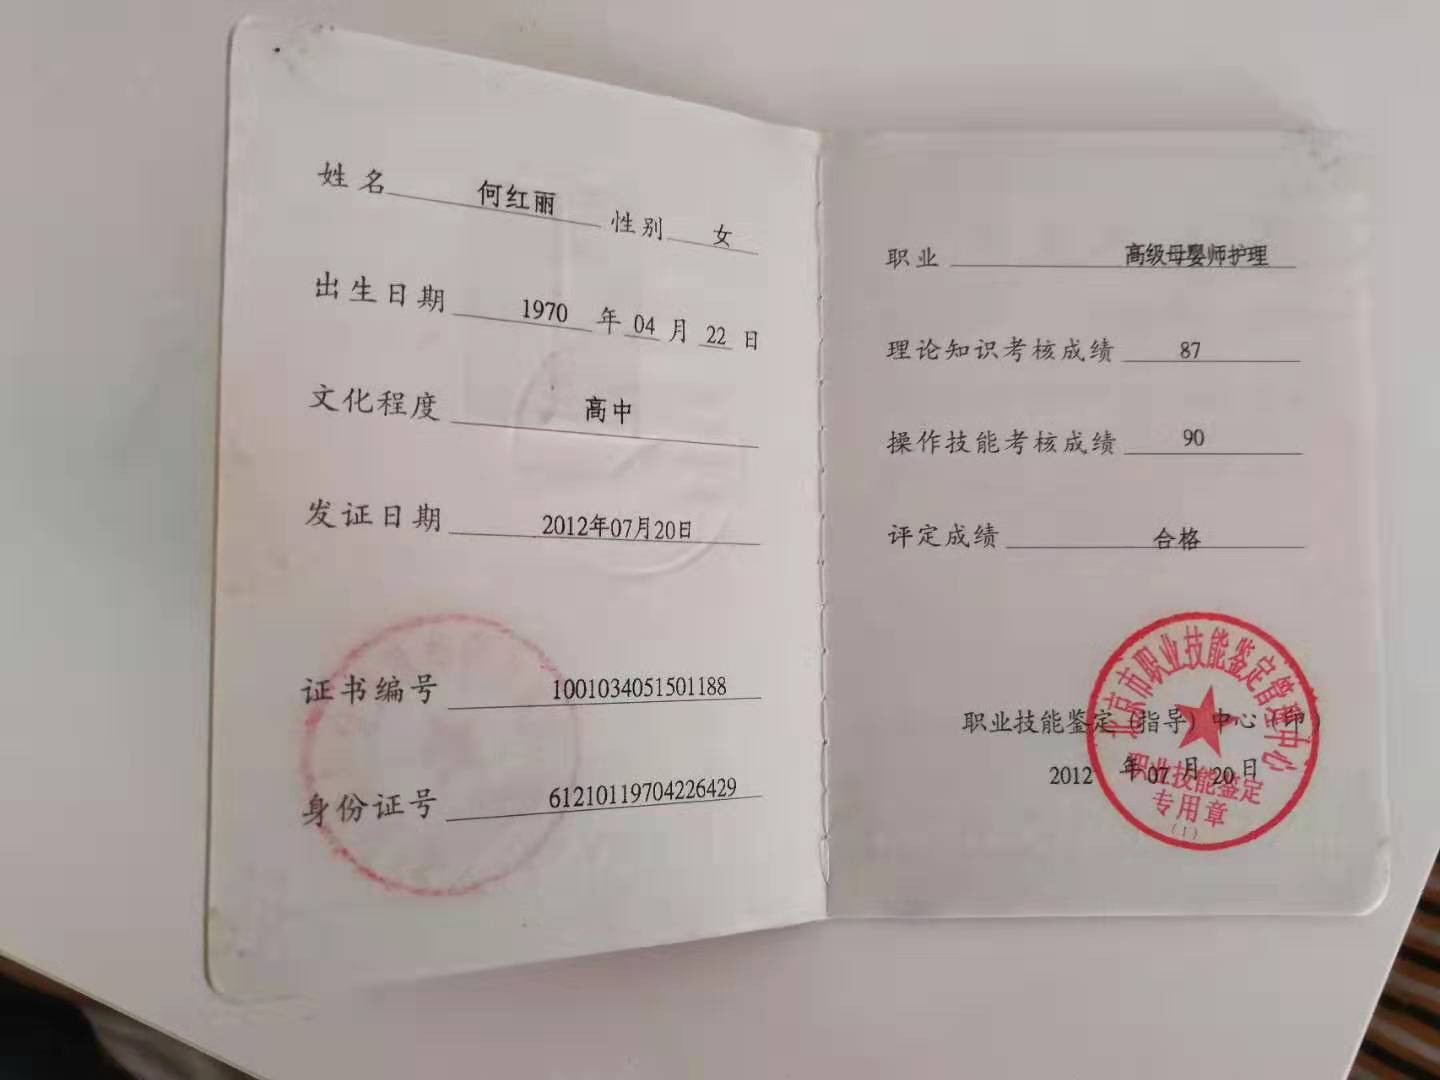 姓名 何红丽 性别 女
出生日期 1970 年 04 月 22 日
文化程度 高中
发证日期 2012年07月20日
证书编号 1001034051501188
身份证号 61210119704226429
职业 高级母婴师护理
理论知识考核成绩 87
操作技能考核成绩 90
评定成绩 合格
职业技能鉴定（指导）中心（印）
2012 年 07 月 20 日
北京市职业技能鉴定管理中心
职业技能鉴定
专用章
（1）